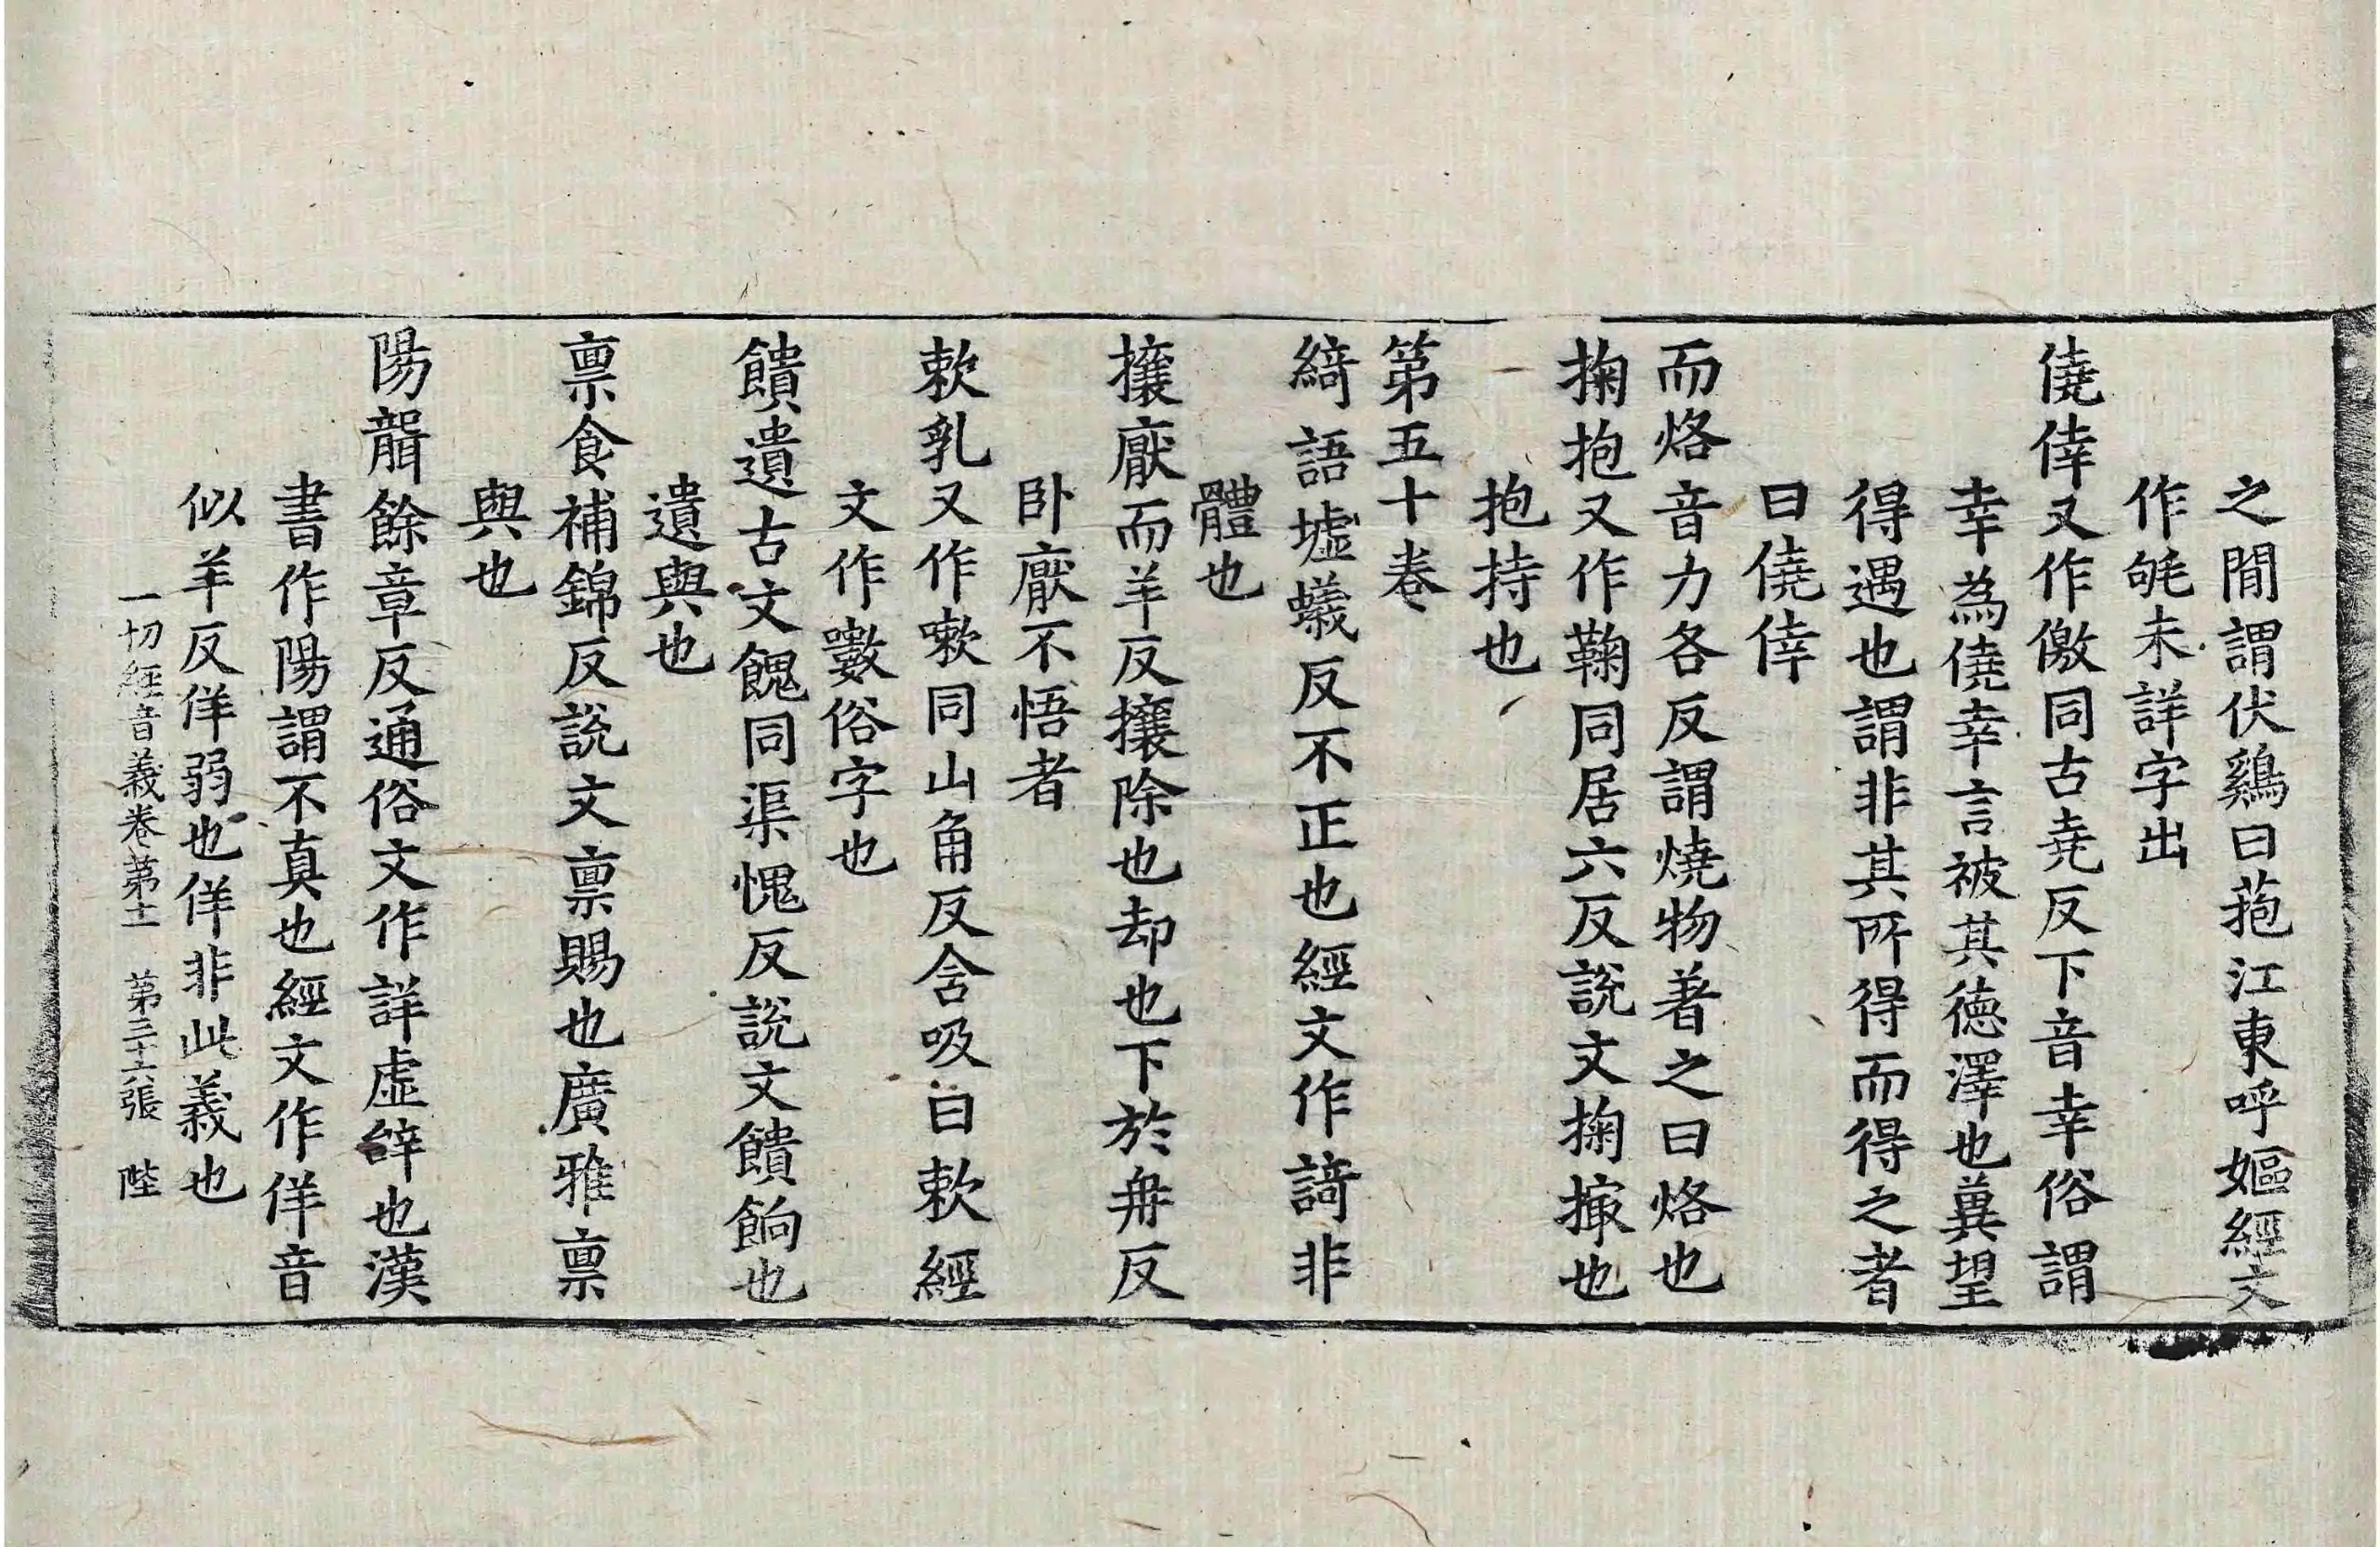 之間謂伏鷄曰菢江東呼嫗經文
作㲒未詳字出
僥倖又作儌同古堯反下音幸俗謂
幸為僥幸言被其德澤也兾望
得遇也謂非其所得而得之者
曰僥倖
而烙音力各反謂燒物著之曰烙也
掬抱又作鞠同居六反說文掬撮也
抱持也
第五十卷
綺語墟蟻反不正也經文作䛴非
體也
攘厭而羊反攘除也却也下於冉反
卧厭不悟者
欶乳又作嗽同山角反含吸曰欶經
文作㰂俗字也
饋遺古文餽同渠愧反說文饋餉也
遺與也
稟食補錦反說文稟賜也廣雅稟
與也
陽聾餘章反通俗文作詳虛辝也漢
書作陽謂不真也經文作佯音
似羊反佯弱也佯非此義也
一切經音義卷第十一 第三十六張 陛